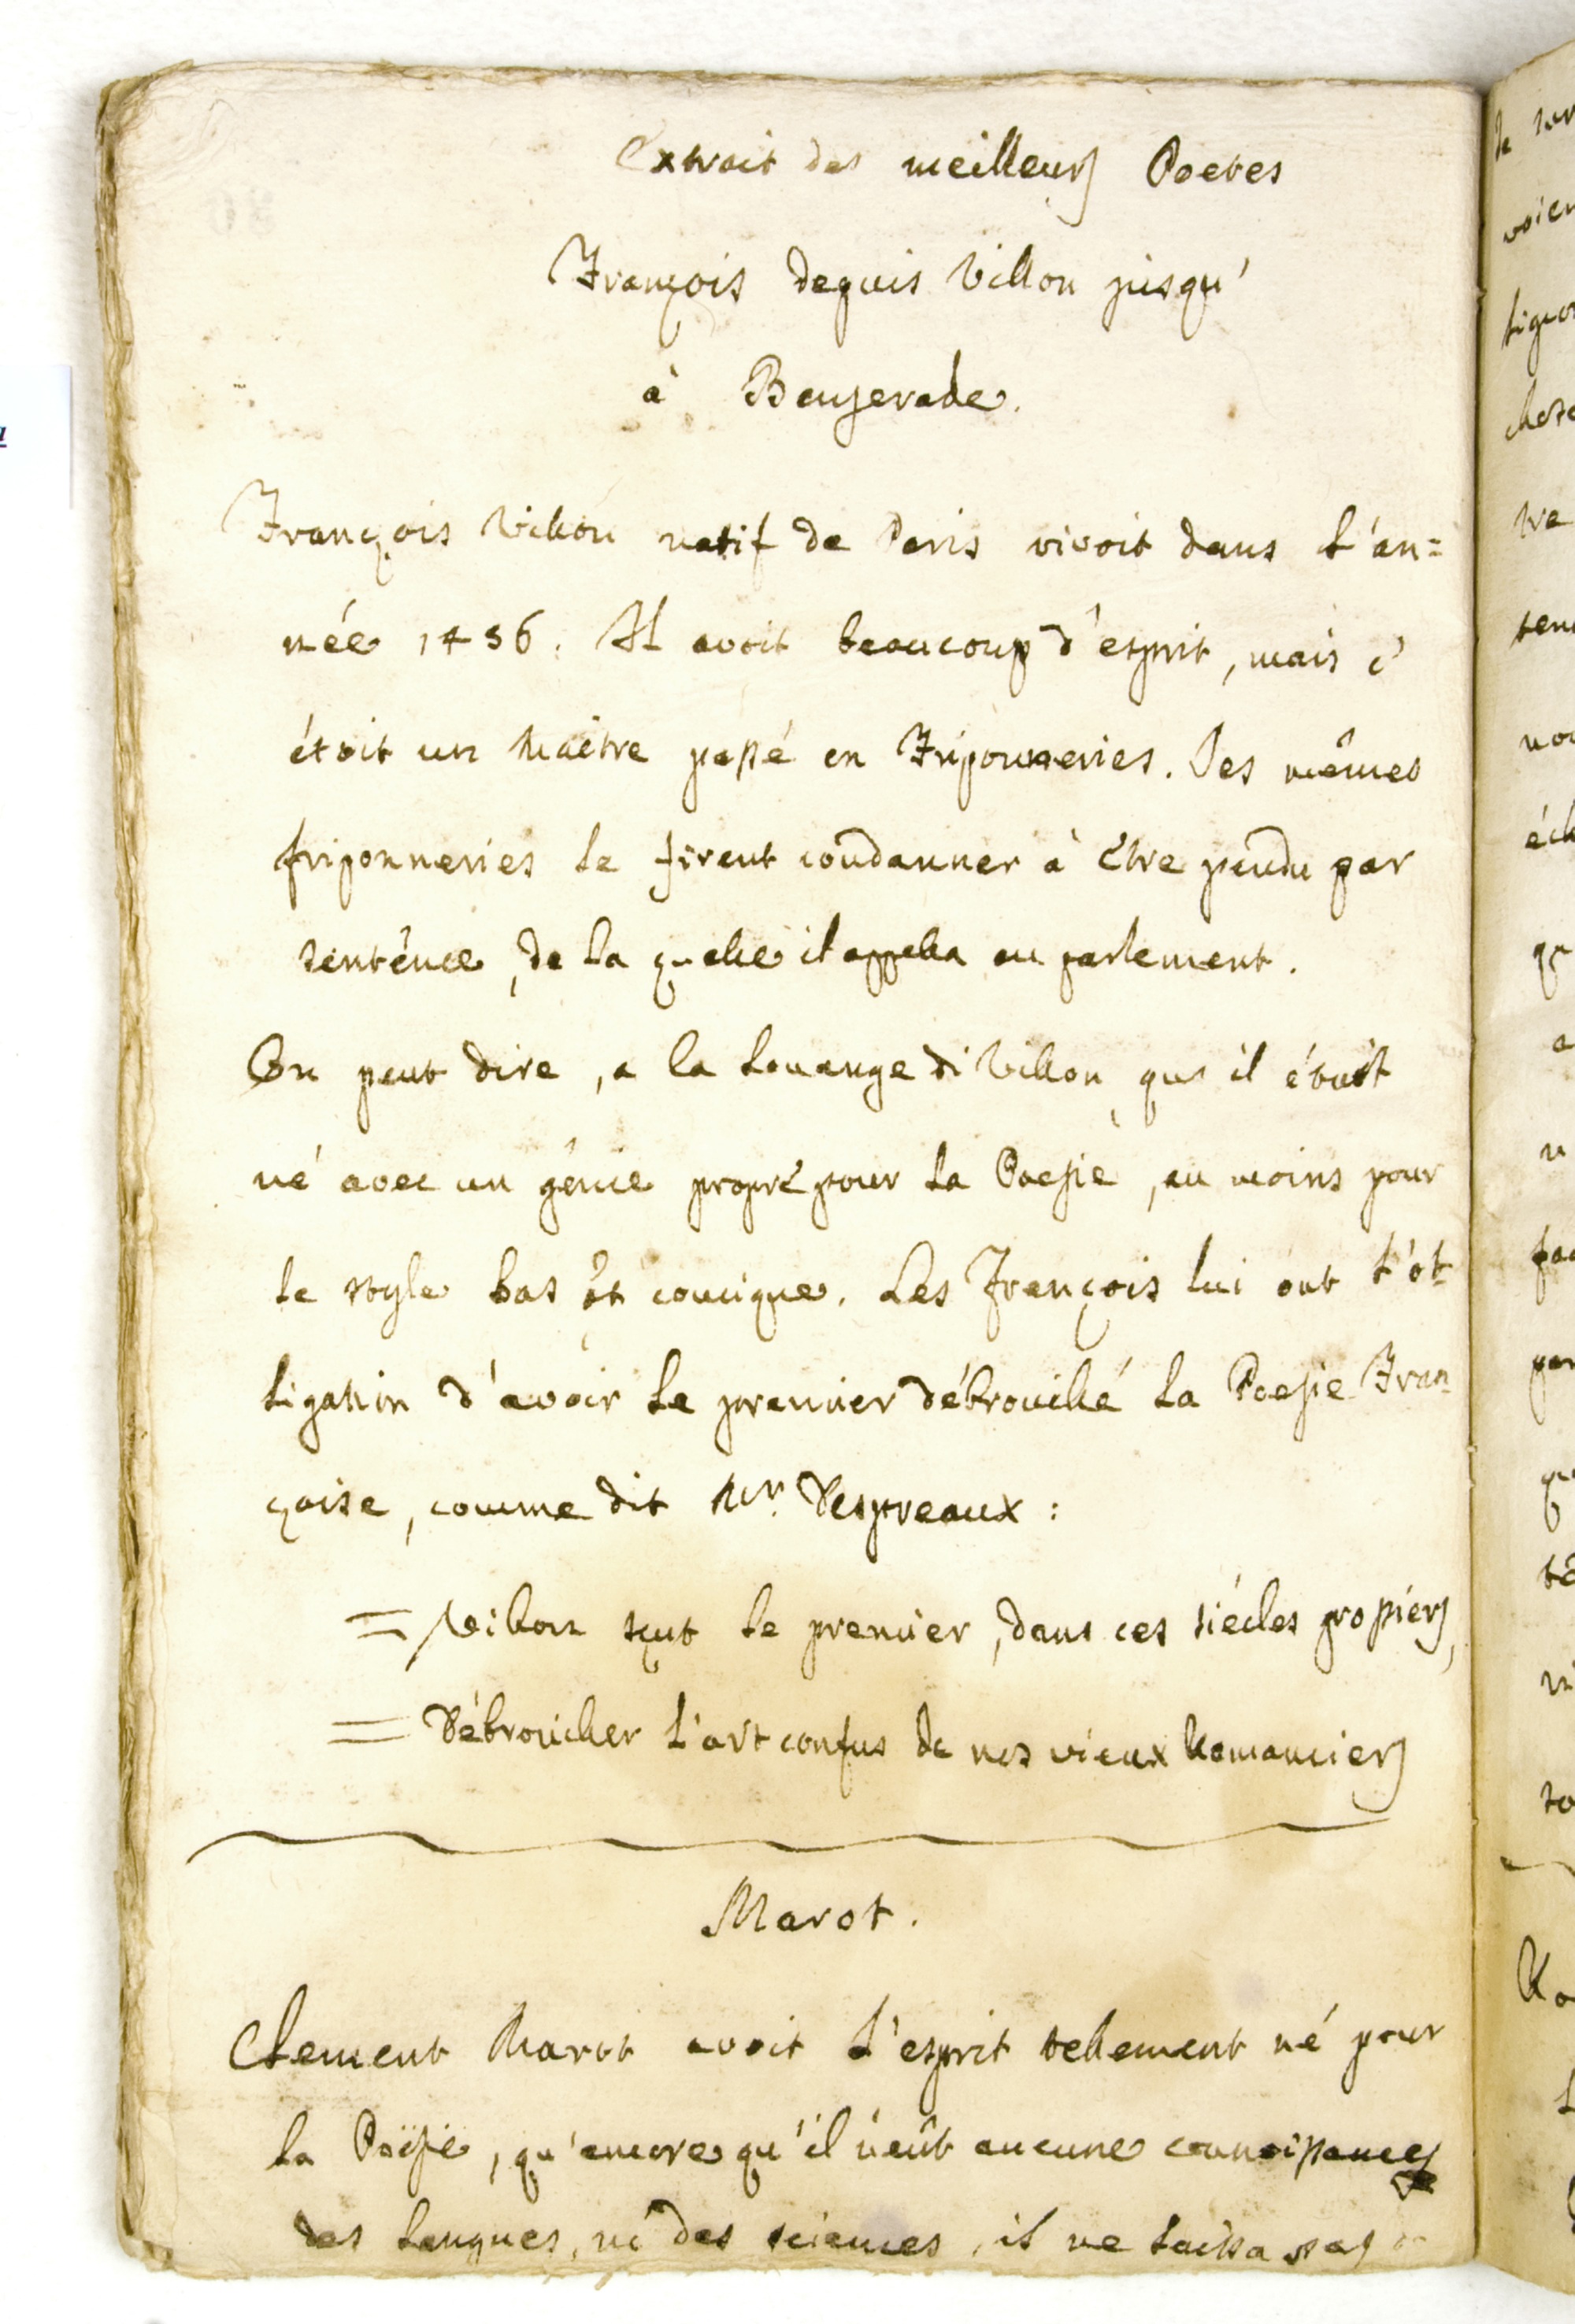 Extrait des meilleurs Poetes
François depuis Villon jusqu'
à Benserade.
François Villon natif de Paris vivoit dans l'an=
née 1456. Il avoit beaucoup d'esprit, mais c'
étoit un Maitre passé en Friponneries. Ses mêmes
friponneries le firent condanner à être pendu par
sentence, de la quelle il appella au parlement.
On peut dire, a la louange di Villon, que il étoit
né avec un génie propre pour la Poesie, au moins pour
le style bas et comique. Les François lui ont l'ob
ligation d'avoir le premier débrouillé la Poesie Fran
çoise, comme dit Mr. Despreaux:
= Villon sçut le premier, dans ces siécles grossiers,
= Débrouiller l'art confus de nos vieux Romanciers
Marot.
Clement Marot avoit l'esprit tellement né pour
la Poësie, qu'encore qu'il n'eût aucune connoissances
des langues, ni des sciences, il ne laissa pas